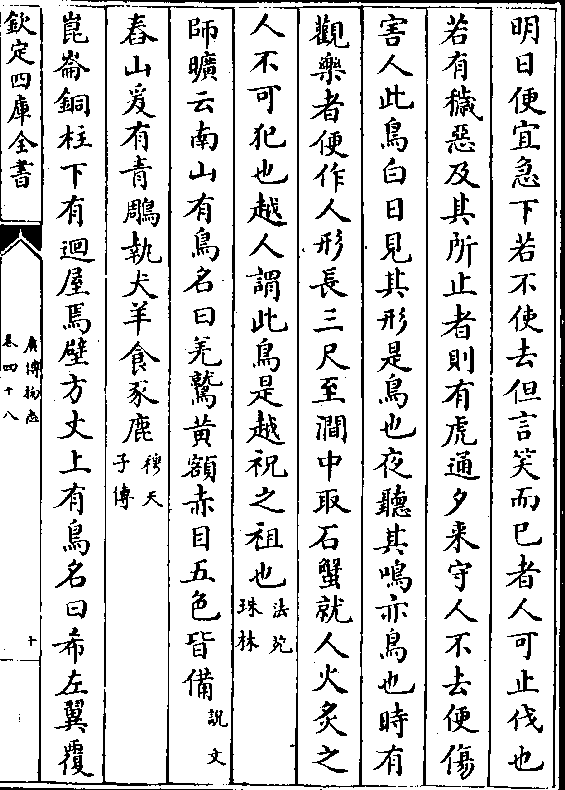 明日便宜急下若不使去但言笑而已者人可止伐也
若有穢惡及其所止者則有虎通夕来守人不去便傷
害人此鳥白日見其形是鳥也夜聽其鳴亦鳥也時有
觀樂者便作人形長三尺至澗中取石蟹就人火炙之
人不可犯也越人謂此鳥是越祝之祖也法苑珠林
師曠云南山有鳥名曰羌鷲黄額赤目五色皆備説文
舂山爰有青鵰執犬羊食豕鹿穆天子傳
崑崙銅柱下有迴屋焉壁方丈上有鳥名曰希左翼覆
欽定四庫全書
廣博物志
卷四十八
十